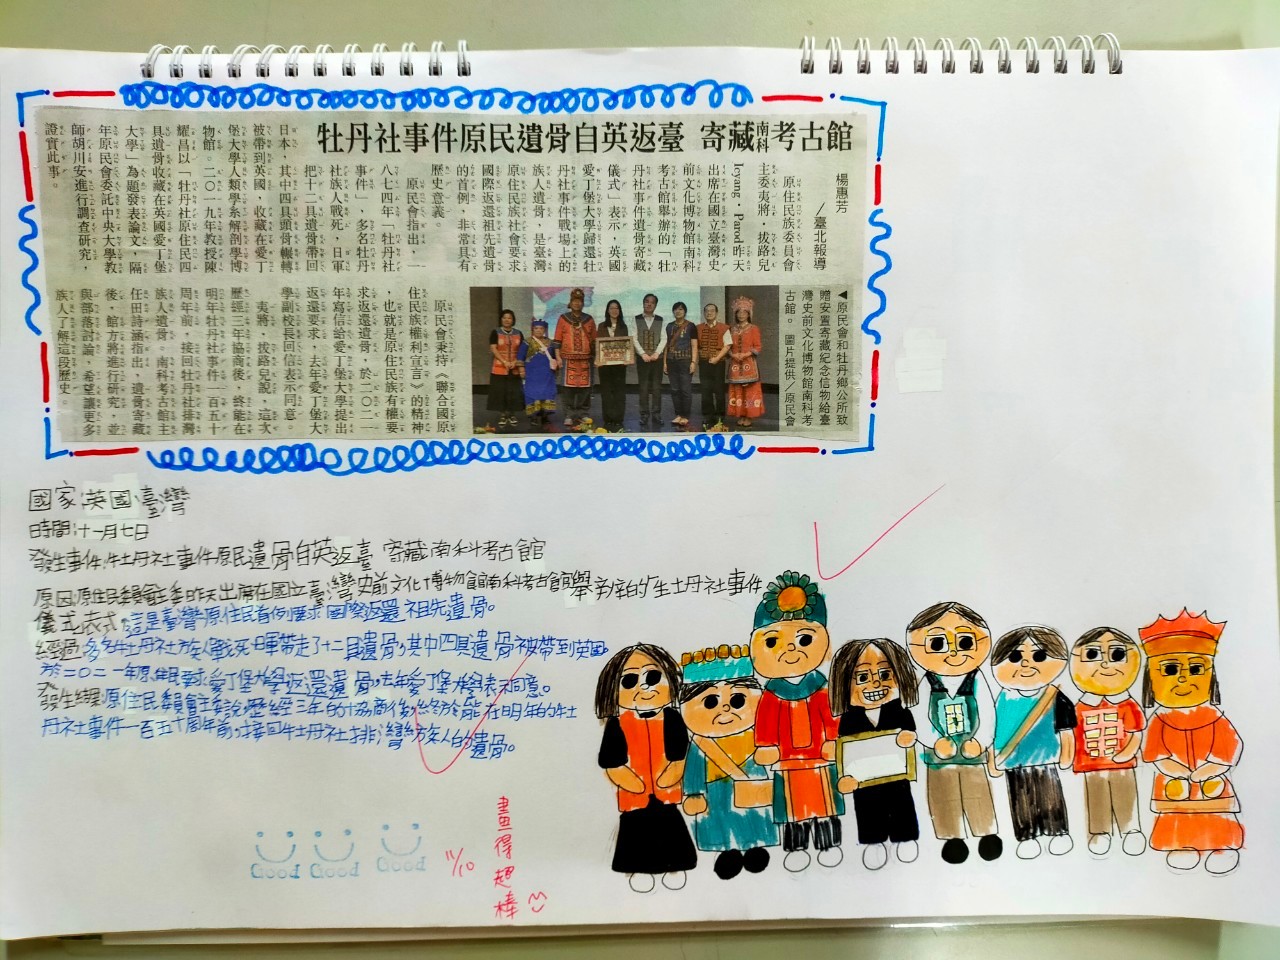 牡丹社事件原民遺骨自英返臺 寄藏南科考古館
楊惠芳
／臺北報導
原住民族委員會
主委夷將．拔路兒
Icyang．Parod昨天
出席在國立臺灣史
前文化博物館南科
考古館舉辦的「牡
丹社事件遺骨寄藏
儀式」表示，英國
愛丁堡大學歸還牡
丹社事件戰場上的
族人遺骨，是臺灣
原住民族社會要求
國際返還祖先遺骨
的首例，非常具有
歷史意義。
原民會指出，一
八七四年「牡丹社
事件」，多名牡丹
社族人戰死，日軍
把十二具遺骨帶回
日本，其中四具頭骨輾轉
被帶到英國，收藏在愛丁
堡大學人類學系解剖學博
物館。二〇一九年教授陳
耀昌以「牡丹社原住民四
具遺骨收藏在英國愛丁堡
大學」為題發表論文，隔
年原民會委託中央大學教
師胡川安進行調查研究，
證實此事。
原民會秉持《聯合國原
住民族權利宣言》的精神
，也就是原住民族有權要
求返還遺骨，於二〇二一
年寫信給愛丁堡大學提出
返還要求，去年愛丁堡大
學副校長回信表示同意。
夷將．拔路兒說，這次
歷經三年協商後，終能在
明年牡丹社事件一百五十
周年前，接回牡丹社排灣
族人遺骨。南科考古館主
任田詩涵指出，遺骨寄藏
後，館方將進行研究，並
與部落討論，希望讓更多
族人了解這段歷史。
◀原民會和牡丹鄉公所致
贈安置寄藏紀念信物給臺
灣史前文化博物館南科考
古館。 圖片提供／原民會
國家:英國臺灣
時間:十一月七日
發生事件:牡丹社事件原民遺骨自英返臺 寄藏南科考古館
原因:原住民委員會主委昨天出席在國立臺灣史前文化博物館南科考古館舉辦的「牡丹社事件
儀式」表式,這是臺灣原住民首例要求國際返還祖先遺骨。
經過:多名牡丹社族人戰死,日軍帶走了十二具遺骨,其中四具遺骨被帶到英國。
於二〇二一年原住民要求愛丁堡大學返還遺骨,去年愛丁堡大學表示同意。
發生結果:原住民委員會主委說,歷經三年的協商後,終於能在明年的牡
丹社事件一百五十周年前,接回牡丹社排灣族人的遺骨。
Good Good Good
11/10
畫得超棒